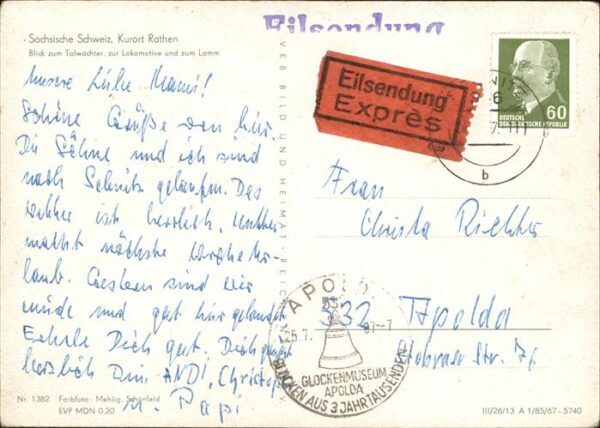 Sächsische Schweiz, Kurort Rathen
Blick zum Talwächter, zur Lokomotive und zum Lamm
Eilsendung
Unsere liebe Mami!
Schöne Grüße von hier.
Die Söhne und ich sind
nach Sebnitz gelaufen. Das
Wetter ist herrlich.
macht nächste Woche Ur-
laub. Gestern sind wir
müde und gut hier gelandet
Erhole Dich gut. Dich grüßt
herzlich Dein ANDI, Christoph
u. Papi
Nr. 1382 Farbfoto: Mehlig, Schönfeld
EVP MDN 0.20
VEB BILD UND HEIMAT REIC
Eilsendung
Exprès
60
DEUTSCHE
DEMOKRATISCHE REPUBLIK
b
Frau
Christa Richter
532 Apolda
Str. 76
APOLDA
5.7.
GLOCKENMUSEUM
APOLDA
GLOCKEN AUS 3 JAHRTAUSENDEN
III/26/13 A 1/85/67 - 5740